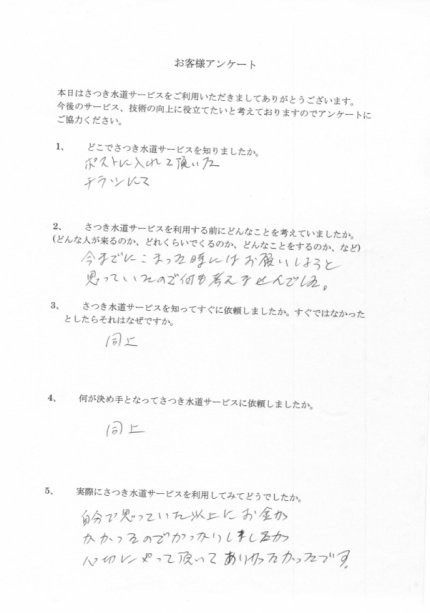 お客様アンケート
本日はさつき水道サービスをご利用いただきましてありがとうございます。
今後のサービス、技術の向上に役立てたいと考えておりますのでアンケートに
ご協力ください。
1、 どこでさつき水道サービスを知りましたか。
ポストに入れて頂いた
チラシにて
2、 さつき水道サービスを利用する前にどんなことを考えていましたか。
(どんな人が来るのか、どれくらいでくるのか、どんなことをするのか、など)
今までにこまった時にはお願いしようと
思っていたので何も考えませんでした。
3、 さつき水道サービスを知ってすぐに依頼しましたか。すぐではなかった
としたらそれはなぜですか。
同上
4、 何が決め手となってさつき水道サービスに依頼しましたか。
同上
5、 実際にさつき水道サービスを利用してみてどうでしたか。
自分で思っていた以上にお金が
かかったのでがっかりしましたが
心切にやって頂いてありがたかったです。